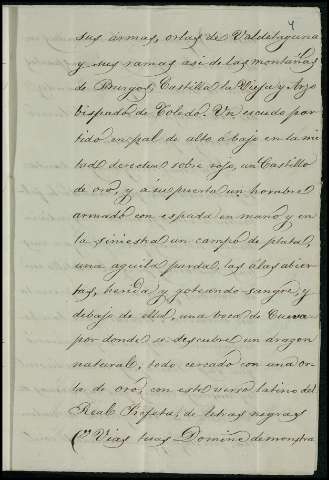 4
sus armas, orlas de Valdelaguna
y sus ramas asi de las montañas
de Burgos, Castilla la Vieja y Arzo
bispado de Toledo. Un escudo par
tido en pal de alto á bajo en la mi
tad derecha sobre rojo, un Castillo
de oro, y á su puerta un hombre
armado con espada en mano y en
la siniestra un campo de plata,
una aguila parda, las álas abier
tas, herida y goteando sangre, y
debajo de ella, una boca de Cueva
por donde se descubre un dragon
natural, todo cercado con una or
la de oro, con este verso latino del
Real Profeta, de letras negras
(" Vias tuas Domine demonstra